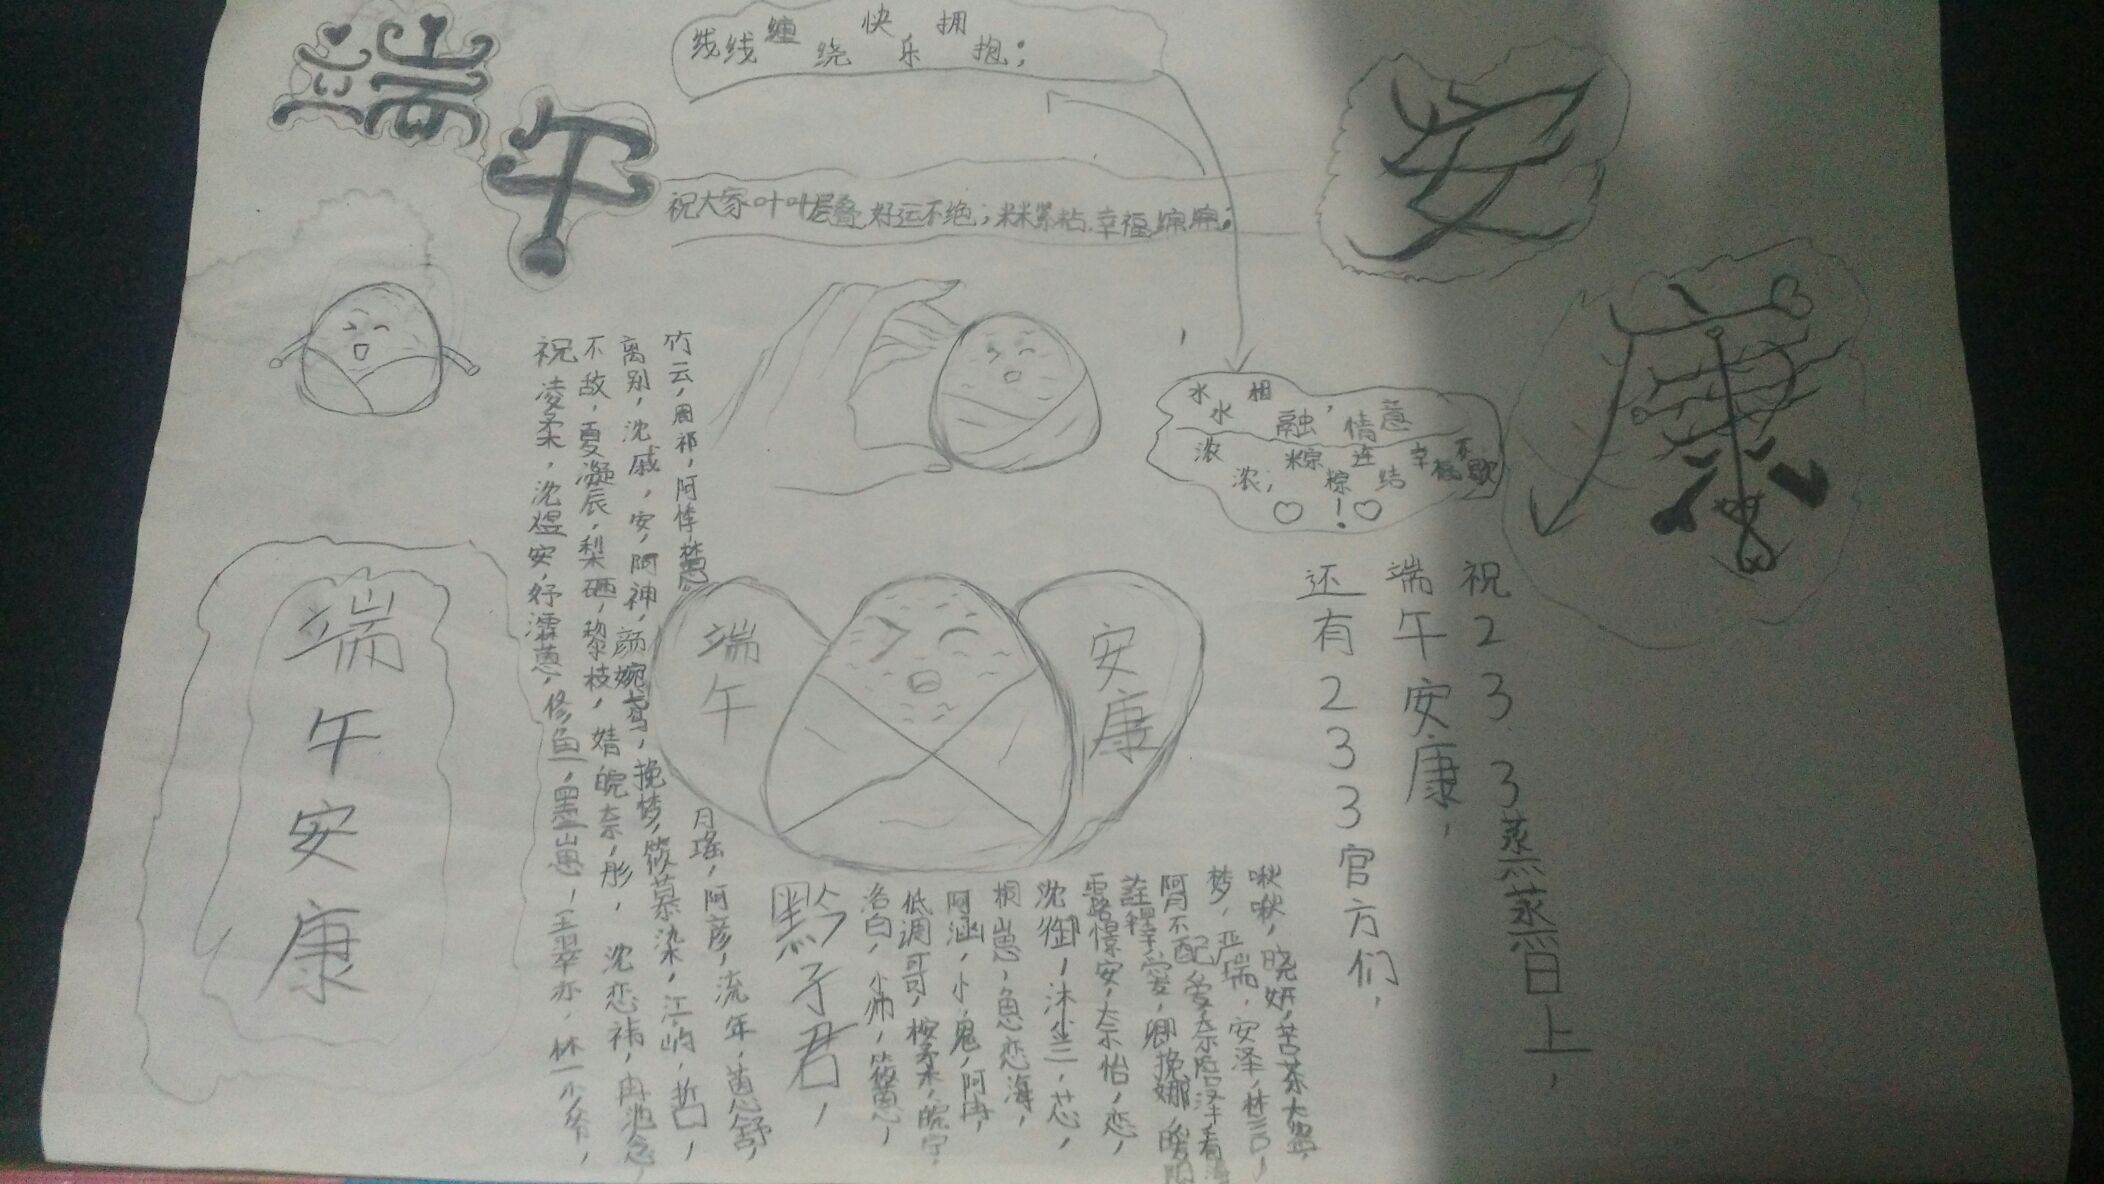 端午
安康
线线缠绕快乐拥抱；
祝大家叶叶层叠好运不绝；米米紧粘.幸福绵绵；
水水相融，情意
浓浓；粽粽连结幸福不歇
！
端午安康
端午
安康
祝233蒸蒸日上，
端午安康，
还有233官方们，
竹云，周祁，阿悸
离别，沈戚，安，阿神，颜婉鸢，挽梦，筱慕染，江屿，哲口，
不敌，夏凝辰，梨硒，黎枝，婧皖奈，彤，沈恋祎，冉池念，
祝凌柔，沈煜安，妤濡蒽，修鱼，墨崽，王翠亦，林一少爷，
月瑶，阿彦，流年，茵舒，
黔子君，
啾啾，晓妍，苦茶大
梦，严瑞，安泽，林言，
阿不配爱
沈御，沐尘，芯，
桐崽，鱼恋海，
阿涵，小鬼，阿冉，
低调哥，桉柔，皖宁，
洛白，小帅，筱蒽，